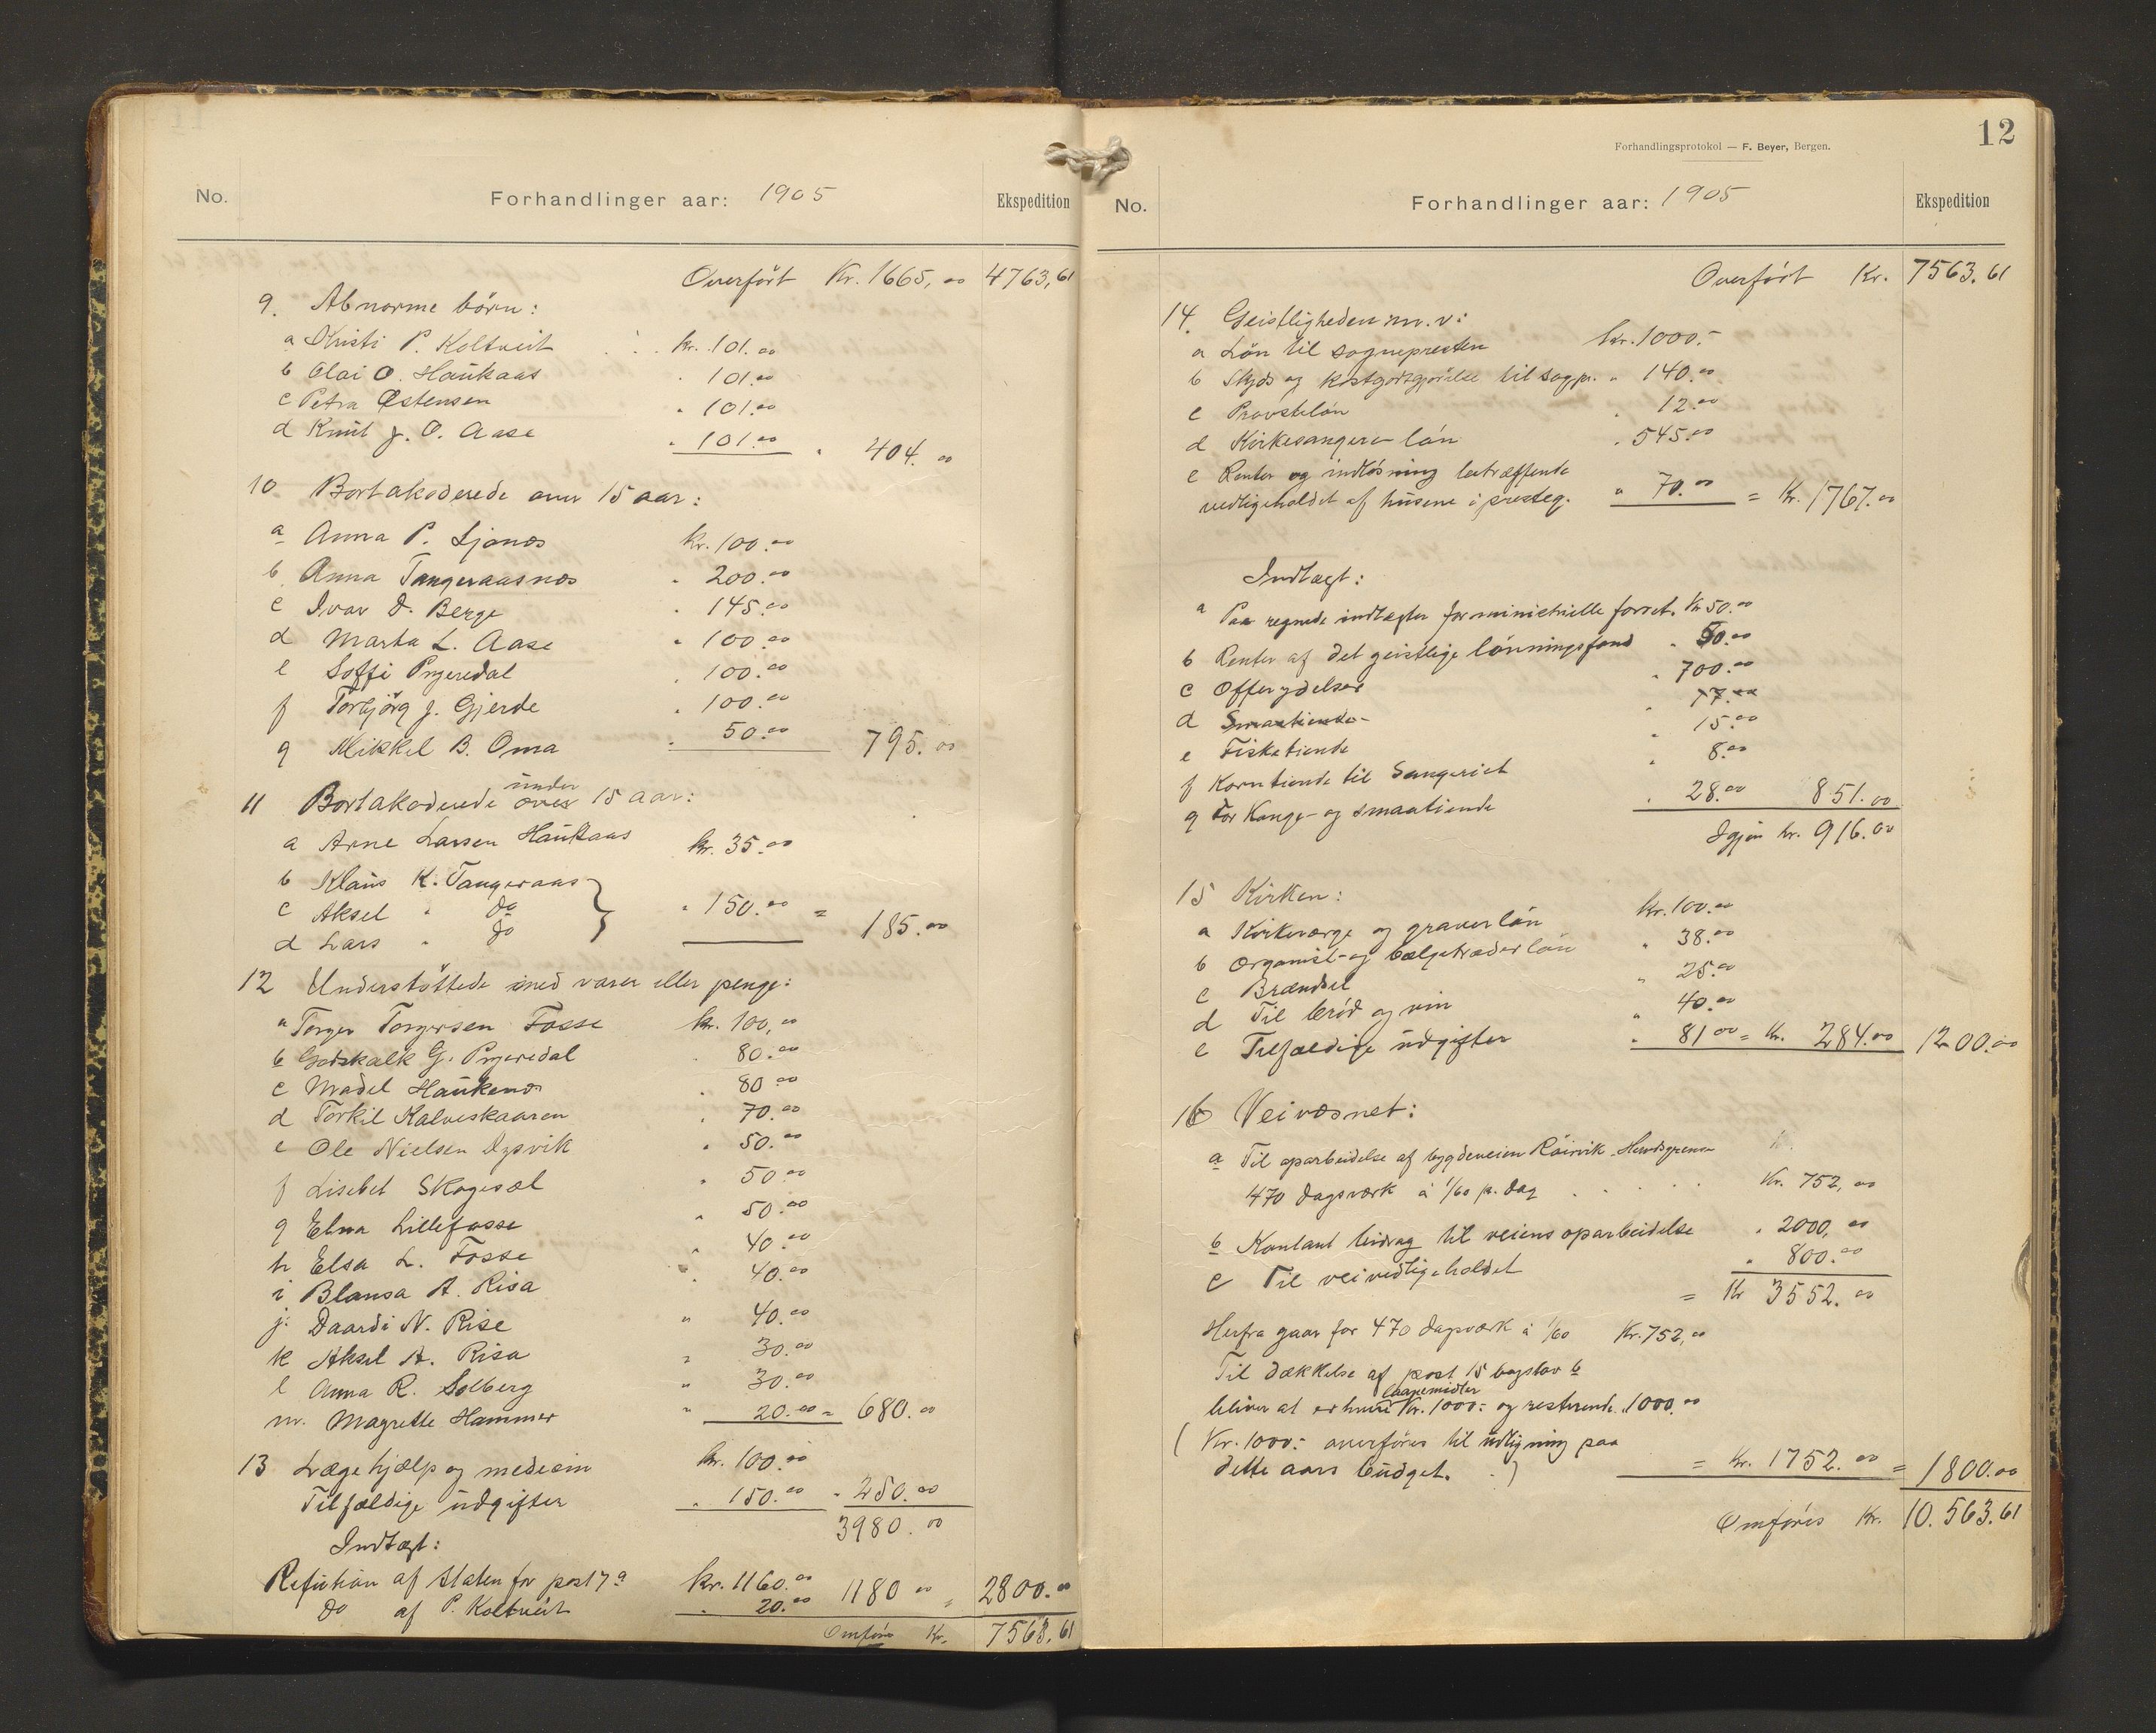 No. Forhandlinger aar: 1905 Ekspedition
Overført Kr. 1665,00 4763,61
9. Abnorme børn:
a Kristi P. Koltveit kr. 101.00
b Olai O. Haukaas " 101.00
c Petra Østensen " 101.00
d Knut J. O. Aase " 101.00 " 404.00
10 Bortakoderede over 15 aar:
a Anna P. Ljones kr. 100.00
b Anna Tangeraasnes " 200.00
c Ivar D. Berge " 145.00
d Marta L. Aase " 100.00
e Soffi Prgeredal " 100.00
f Torbjörg J. Gjerde " 100.00
g Mikkel B. Oma " 50.00 795.00
11 Bortakoderede under over 15 aar:
a Arne Larsen Haukaas kr. 35.00
b Klaus K. Tangeraas
c Aksel " do " 150.00 = 185.00
d Lars " do
12 Understöttede med varer eller penge:
a Torger Torgersen Fosse kr. 100,00
b Godskalk G. Prgeredal " 80.00
c Madel Haukenes " 80.00
d Torkil Kalveskaaren " 70.00
e Ole Nielsen Dysvik " 50.00
f Lisebet Skogesæl " 50.00
g Elna Lillefosse " 50.00
h Elsa L. Fosse " 40.00
i Blansa A. Risa " 40.00
j. Daardi N. Rise " 40.00
k Aksel A. Risa " 30.00
l Anna R. Solberg " 30.00
m. Magrette Hammer " 20.00 = 680.00
13 Lægehjælp og medicin kr. 100.00
Tilfældige udgifter " 150.00 " 250.00
3980.00
Indtægt:
Refution af Staten for post 7 a kr. 1160.00
Do af P. Koltveit " 20.00 1180 00 = 2800.00
Omføres Kr. 7563,61
12
Forhandlingsprotokol — F. Beyer, Bergen.
No. Forhandlinger aar: 1905 Ekspedition
Overført Kr. 7563.61
14. Geistligheden m.v:
a Løn til sognepresten kr. 1000.-
b Skyds og kostgodtgjørelse til sogpr. " 140.00
c Provsteløn " 12.00
d Kirkesanger løn " 545.00
e Renter og indløsning betræffende
vedligeholdet af husene i presteg. " 70.00 = Kr. 1767.00
Indtægt:
a Paa regnede indtægter for ministrielle forret. Kr 50.00
b Renter af det geistlige lønningsfond " 50.00
c Offerydelser " 700.00
d Smaatiende- " 17.00
e Fisketiende " 15.00
f Korntiende til Sangeriet " 8.00
g For Konge- og smaatiende " 28.00 851.00
Igjen kr. 916.00
15 Kirken:
a Kirkeværge og graverløn kr. 100.00
b Organist- og bælgetræderløn " 38.00
c Brændsel " 25.00
d Til brød og vin " 40.00
e Tilfældige udgifter " 81 00 = Kr. 284.00 1200.00
16 Veivæsnet:
a Til oparbeidelse af bygdeveien Röirvik - Herredsgrensen
470 Dagsværk á 1/60 p. Dag Kr. 752,00
b Kontant bidrag til veiens oparbeidelse " 2000,00
c Til veivedligeholdet " 800.00
= Kr 3552.00
Herfra gaar for 470 dagsværk á 1/60 Kr. 752,00
Til dækkelse af post 15 bogstav b
laanemidler
bliver at erhverve Kr. 1000:- og resterende " 1000.00
(Kr. 1000:- overføres til udligning paa
dette aars budget.) = Kr. 1752.00 = 1800.00
Omføres Kr. 10.563.61